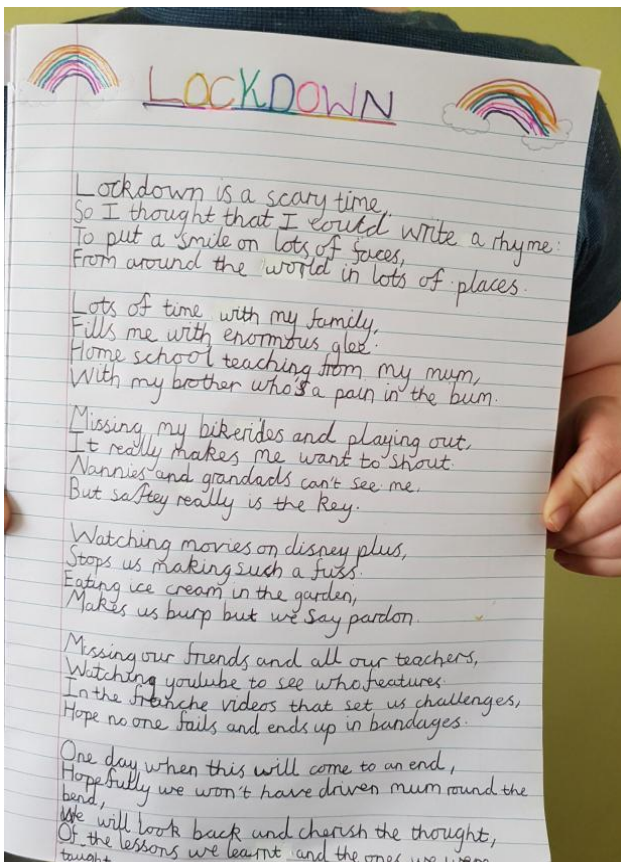 LOCKDOWN
Lockdown is a scary time,
So I thought that I could write a rhyme.
To put a smile on lots of faces,
From around the world in lots of places.
Lots of time with my family,
Fills me with enormous glee.
Home school teaching from my mum,
With my brother who's a pain in the bum.
Missing my bikerides and playing out,
It really makes me want to shout.
Nannies and grandads can't see me,
But saftey really is the key.
Watching movies on disney plus,
Stops us making such a fuss.
Eating ice cream in the garden,
Makes us burp but we say pardon.
Missing our friends and all our teachers,
Watching youlube to see who features.
In the franche videos that set us challenges,
Hope no one fails and ends up in bandages.
One day when this will come to an end,
Hopefully we won't have driven mum round the
bend,
We will look back and cherish the thought,
Of the lessons we learnt and the ones we were
taught